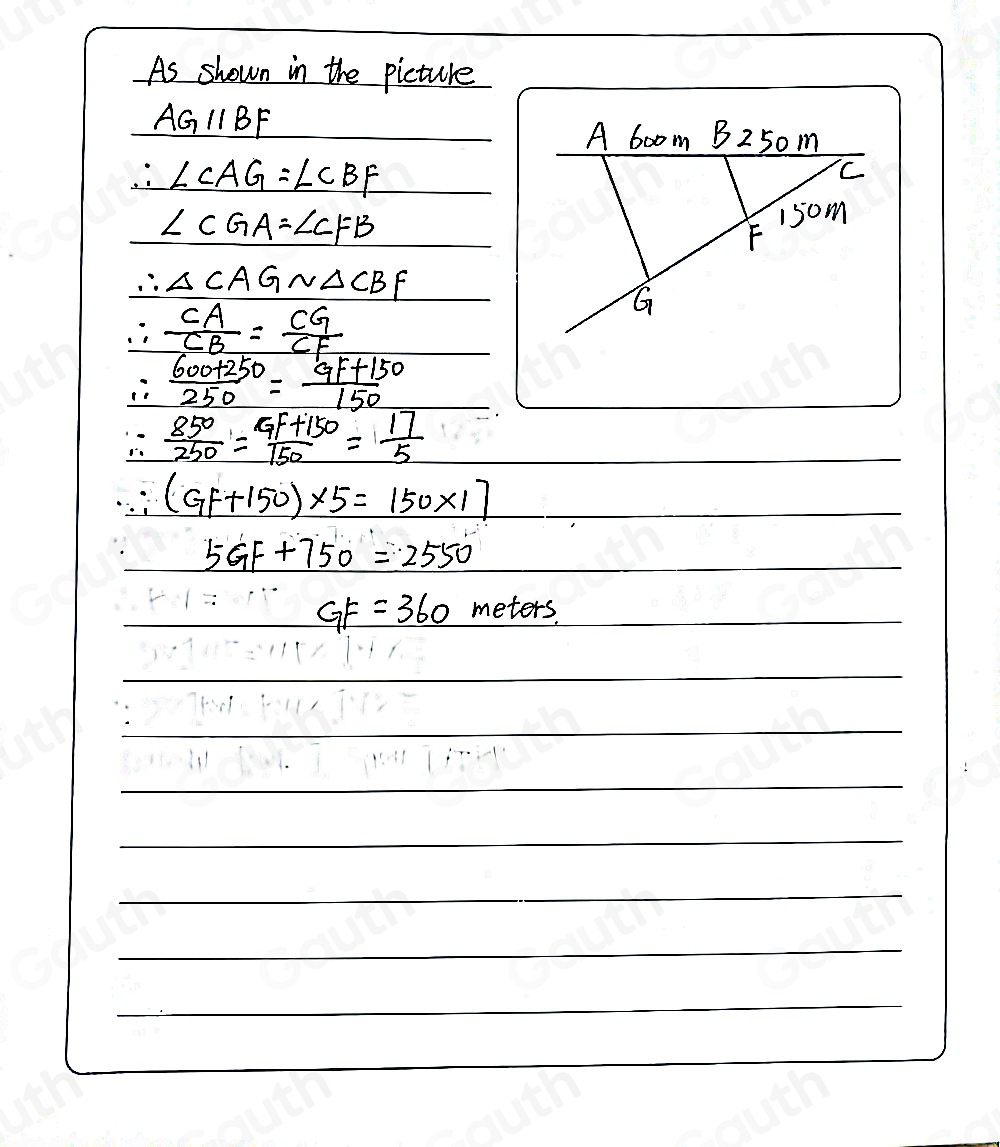 As shown in the picture
AG // BF
∴ ∠CAG = ∠CBF
∠CGA = ∠CFB
∴ △CAG ~ △CBF
∴ CA/CB = CG/CF
∴ (600+250)/250 = (GF+150)/150
∴ 850/250 = (GF+150)/150 = 17/5
∴ (GF+150)×5 = 150×17
5GF+750 = 2550
GF = 360 meters.
A 600m B 250m
C
150m
F
G
Gauth